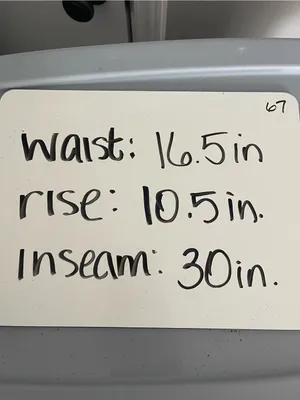 67
Waist: 16.5in
rise: 10.5in.
Inseam: 30in.